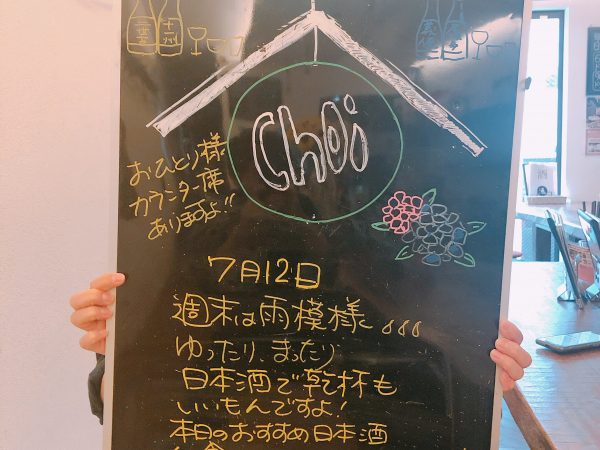 十一州
Choi
おひとり様
カウンター席
ありますよ!!
7月12日
週末は雨模様
ゆったり、まったり
日本酒で乾杯も
いいもんですよ!
本日のおすすめ日本酒